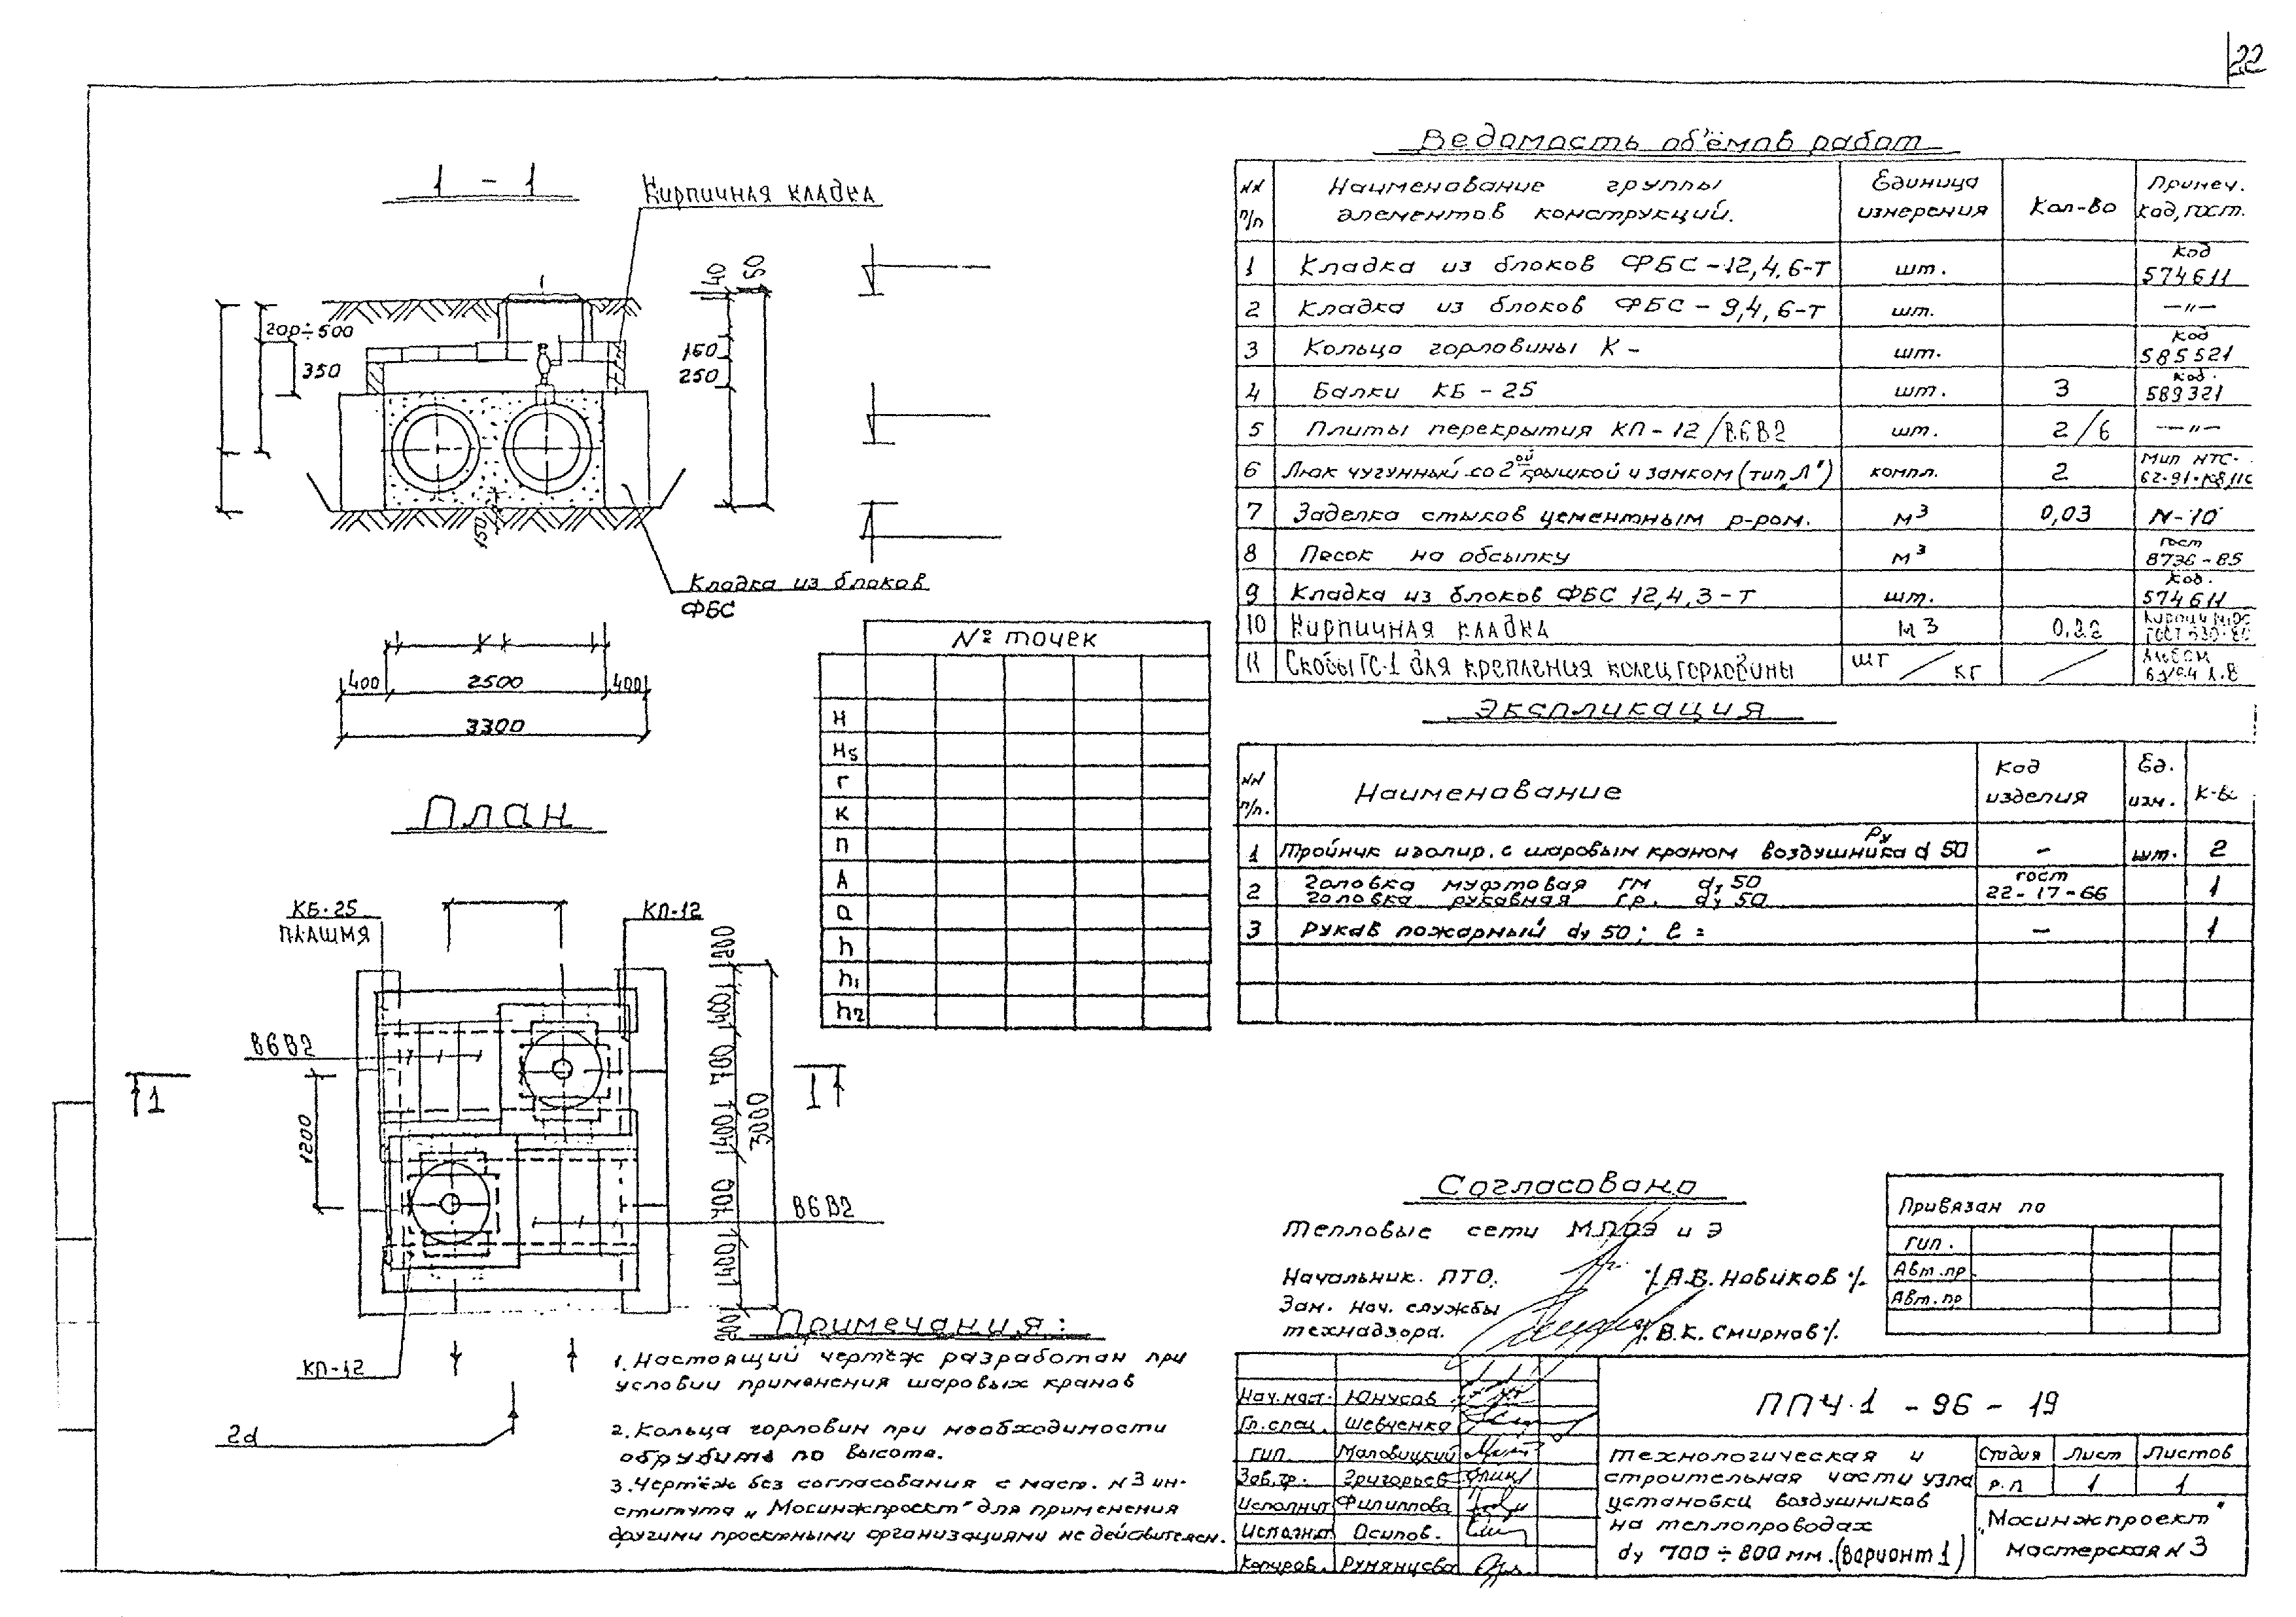 22
1 - 1
Кирпичная кладка
40
50
200÷500
350
160
250
150
Кладка из блоков
ФБС
400 2500 400
3300
План
КБ-25
плашмя
КП-12
В6В2
1
1
1200
200 400 700 400 700 400 200
3000
В6В2
КП-12
2d
№ точек
Н
Н5
Г
К
П
А
а
h
h1
h2
Ведомость объёмов работ
NN п/п Наименование группы элементов конструкций. Единица измерения Кол-во Примеч. код, гост.
1 Кладка из блоков ФБС-12,4,6-Т шт. Код 574611
2 Кладка из блоков ФБС-9,4,6-Т шт. —"—
3 Кольцо горловины К- шт. Код 585521
4 Балки КБ-25 шт. 3 Код. 589321
5 Плиты перекрытия КП-12/В6В2 шт. 2/6 —"—
6 Люк чугунный со 2ой крышкой и замком (тип „Л") компл. 2 Мип НТС-62-91
7 Заделка стыков цементным р-ром. м3 0,03 N-10
8 Песок на обсыпку м3 гост 8736-85
9 Кладка из блоков ФБС 12,4,3-Т шт. Код. 574611
10 Кирпичная кладка м3 0.22 ГОСТ 530-80
11 Скобы ГС-1 для крепления колец горловины шт / кг / Альбом
Экспликация
NN п/п. Наименование Код изделия Ед. изм. К-во
1 Тройник изолир. с шаровым краном воздушника Ру d 50 - шт. 2
2 Головка муфтовая ГМ dу 50
Головка рукавная ГР. dу 50 гост 22-17-66 1
3 Рукав пожарный dу 50; ℓ = - 1
Примечания:
1. Настоящий чертёж разработан при
условии применения шаровых кранов
2. Кольца горловин при необходимости
обрубить по высоте.
3. Чертёж без согласования с маст. N3 ин-
ститута „Мосинжпроект" для применения
другими проектными организациями не действителен.
Согласовано
Тепловые сети МПОЭ и Э
Начальник ПТО. /А.В. Новиков/
Зам. нач. службы
технадзора. /В.К. Смирнов/.
Привязан по
ГИП.
Авт.пр.
Авт.пр
Нач.маст. Юнусов
Гл.спец. Шевченко
ГИП. Маловицкий
Зав.гр. Григорьев
Исполнит Филиппова
Исполнит Осипов.
Копиров. Румянцева
ППЧ.1 - 96 - 19
Технологическая и
строительная части узла
установки воздушников
на теплопроводах
dу 700÷800 мм. (Вариант 1)
Стадия Лист Листов
Р.П 1 1
„Мосинжпроект"
Мастерская N 3